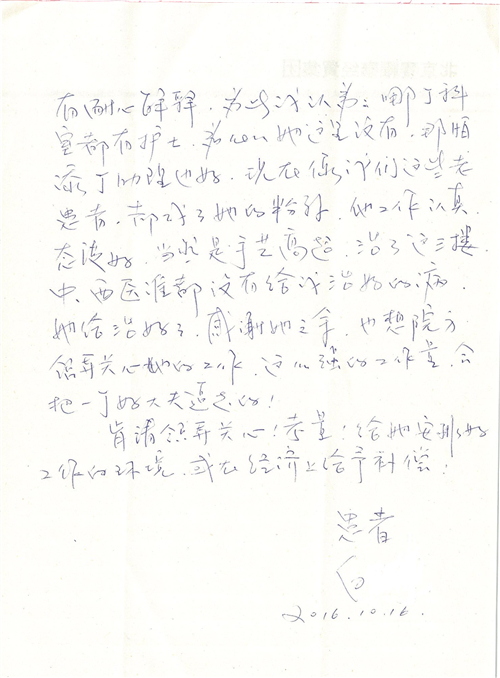 有耐心解释，为此我认为：哪个科
室都有护士，为什么她这里没有，那怕
添个助理也好，现在像我们这些老
患者，都成了她的粉丝，他工作认真
态度好，当然是手艺高超，治了这三楼
中、西医谁都没有给我治好的病，
她给治好了，感谢她之余，也想院方
领导关心她的工作，这么强的工作量，会
把一个好大夫逼走的！
肯请领导关心！考量！给她安排好
工作的环境，或在经济上给予补偿！
患者
白
2016.10.16.